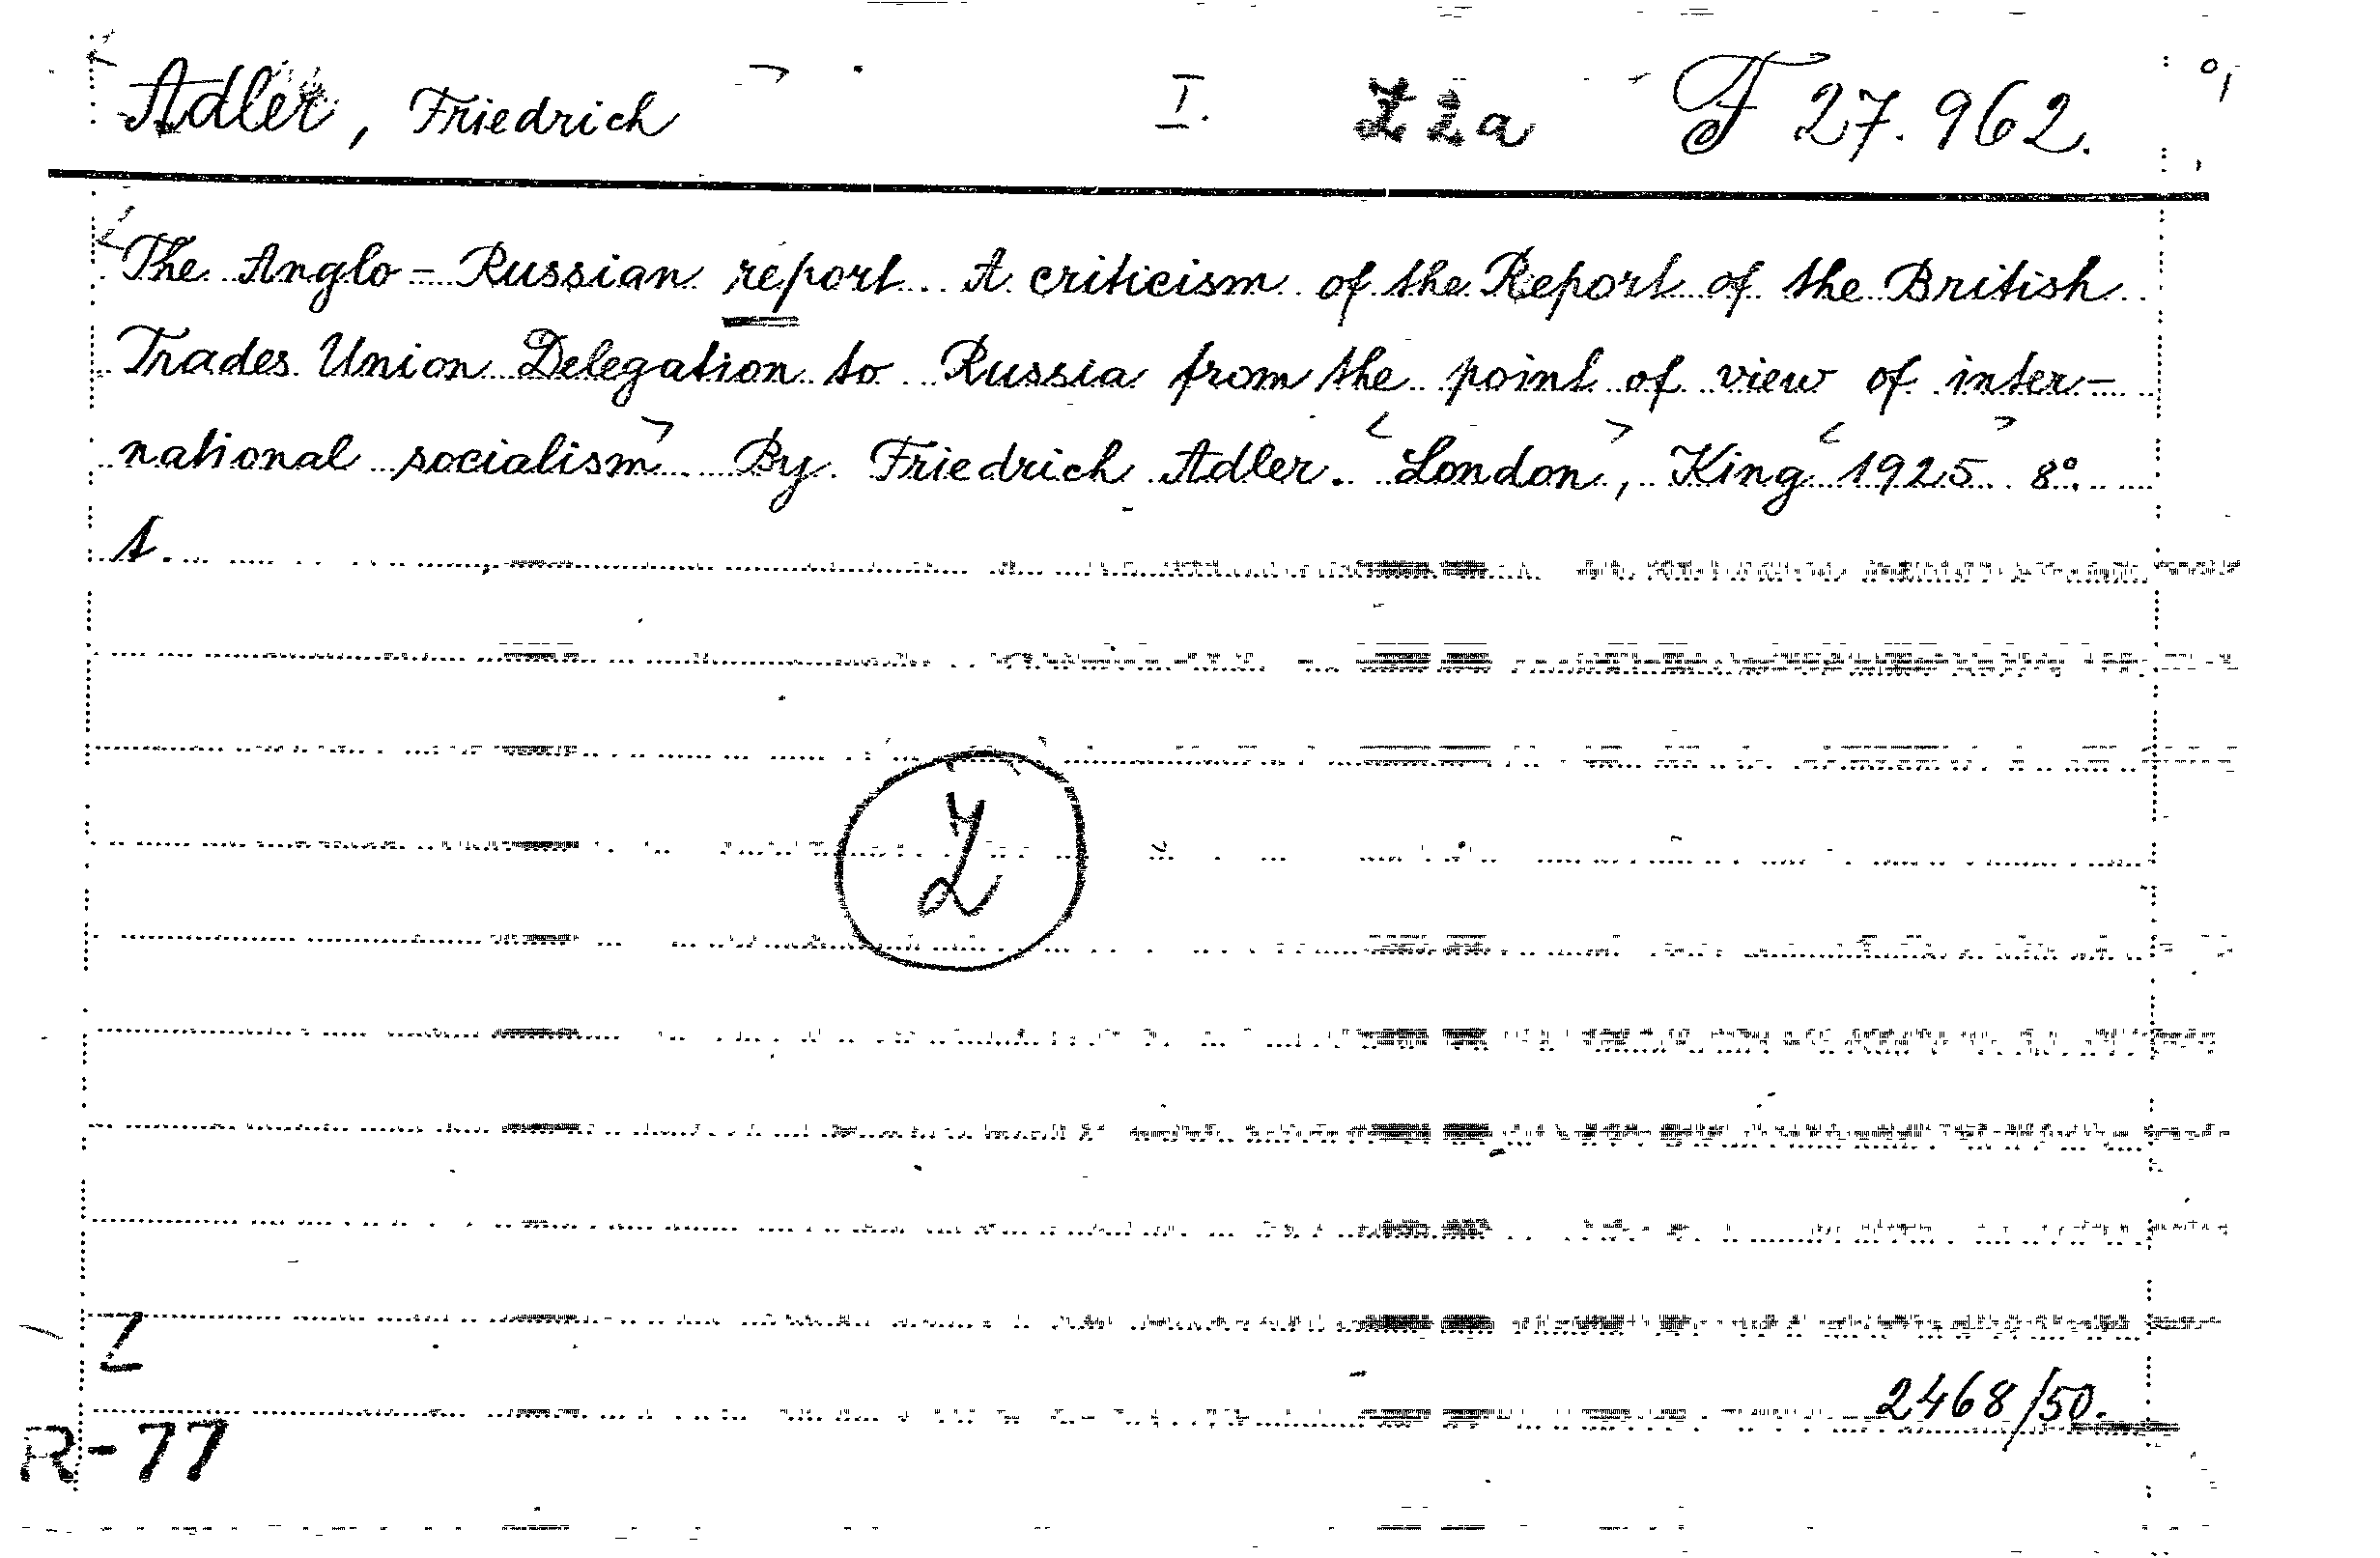 Adler, Friedrich I. Z2a F 27.962.
The Anglo-Russian report. A criticism of the Report of the British
Trades Union Delegation to Russia from the point of view of inter-
national socialism. By Friedrich Adler. London, King 1925 8°.
A.
Z
Z
2468/50.
R-77